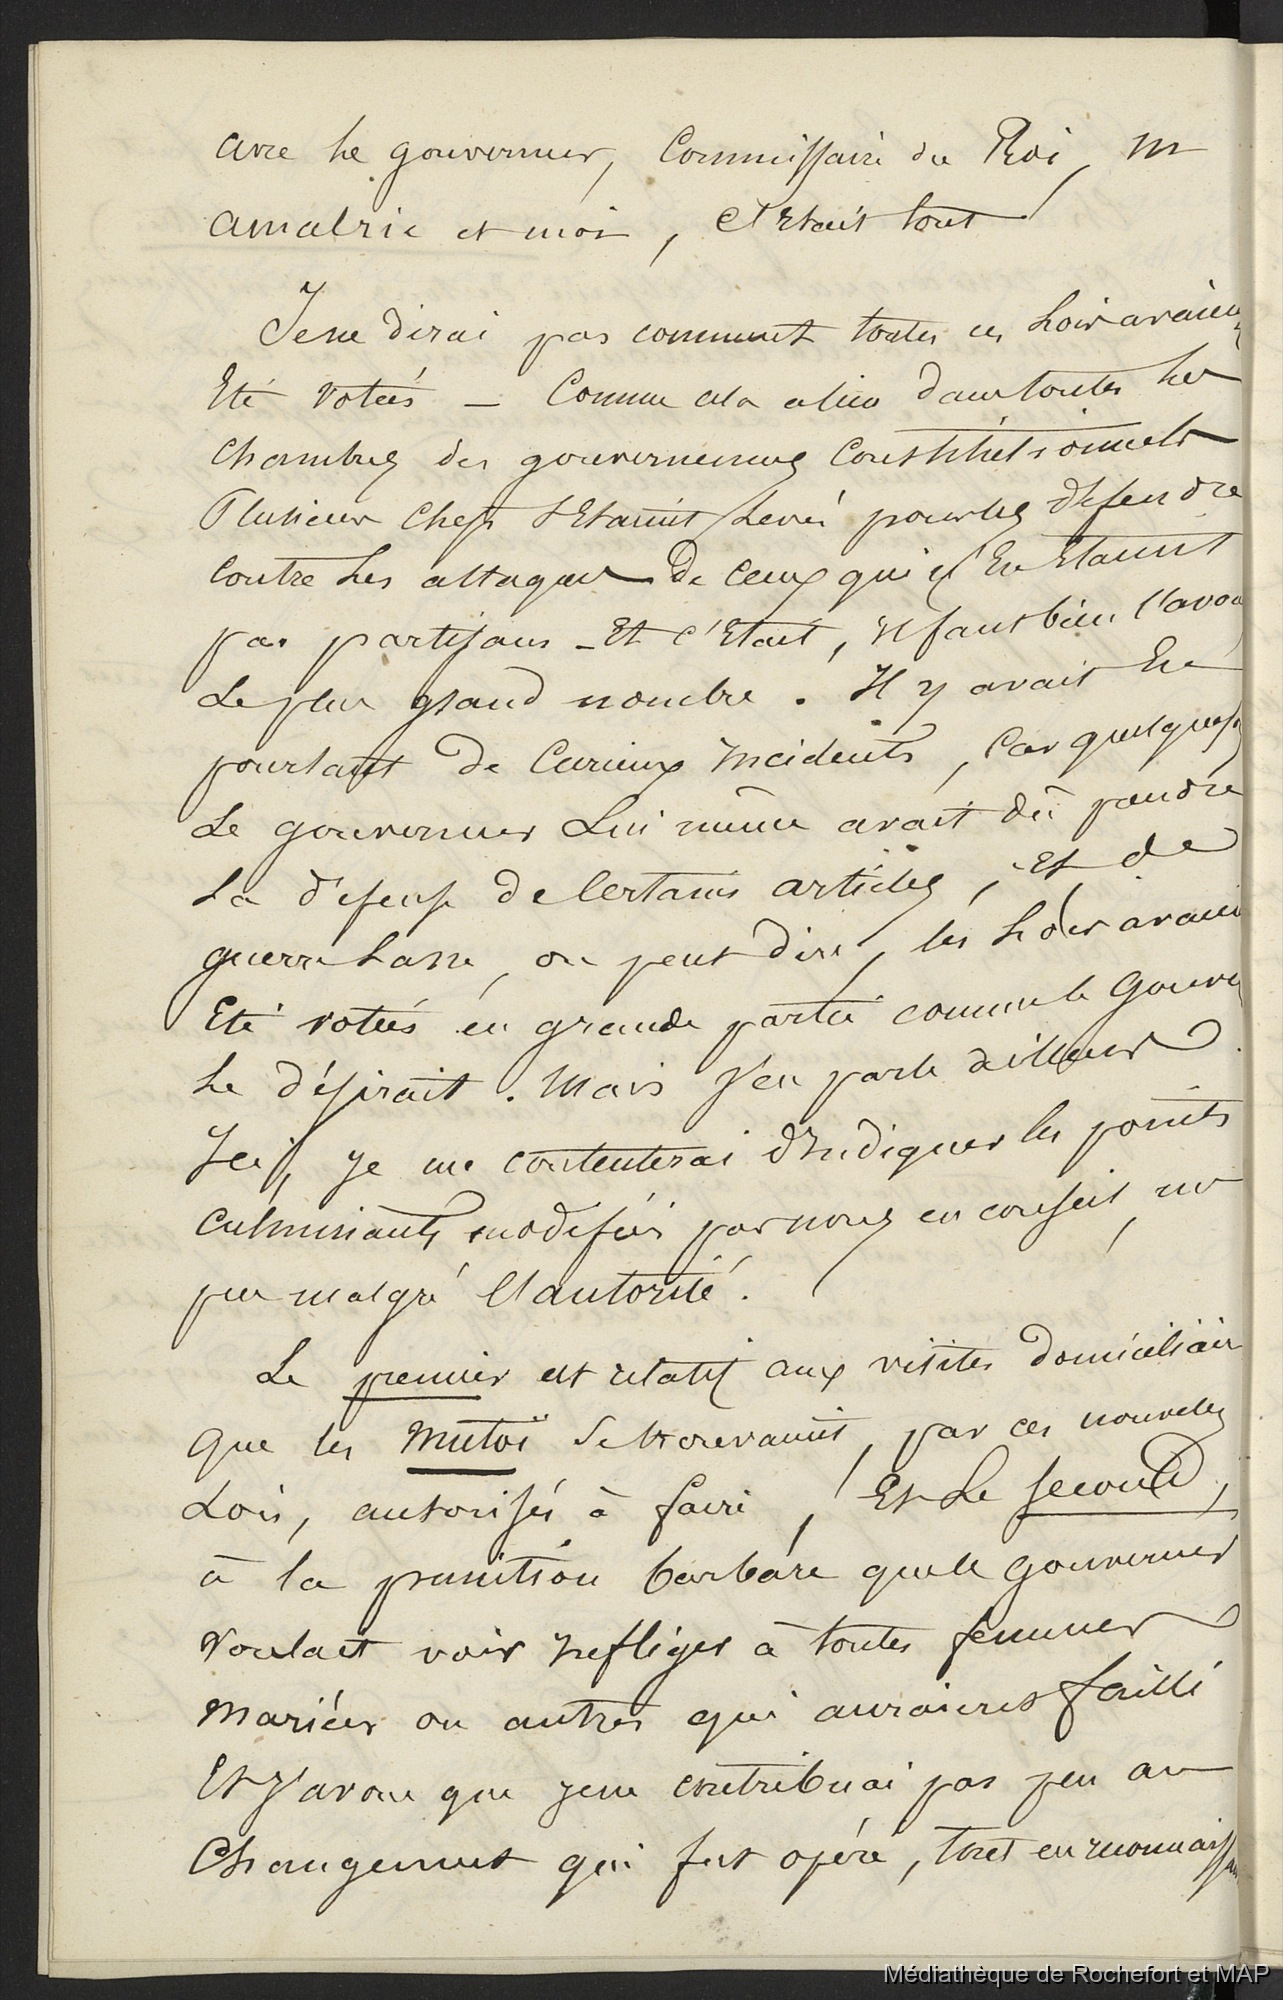 avec le gouverneur, Commissaire du Roi, Mr
Amalric et moi, c'était tout
Je ne dirai pas comment toutes ces Lois avaient
Eté votées – Comme cela a lieu dans toutes les
Chambres des gouvernemens Constitutionnels
Plusieurs Chefs s'Etaient Levés pour les défendre
contre Les attaques de ceux qui n'En Etaient
pas partisans – Et c'Etait, il faut bien l'avou
Le plus grand nombre. Il y avait Eu
pourtant de Curieux incidents, Car quelquefois
Le gouverneur Lui même avait dû prendre
La défense de Certains articles, Et de
guerre Lasse, on peut dire, les Lois avaient
Eté votées en grande partie comme le Gouver
Le désirait. Mais j'en parle ailleurs
Ici, je me contenterai d'Indiquer les points
culminants modifiés par nous en conseil, un
peu malgré l'autorité.
Le premier est relatif aux visites domiciliair
que les Mutoï se trouvaient, par ces nouvelles
Lois, autorisés à faire, Et Le second,
à la punition barbare que le Gouverneur
voulait voir infliger à toutes femmes
mariées ou autres qui auraient failli
Et j'avoue que je ne contribuai pas peu au
Changement qui fut opéré, tout en reconnaissan
Médiathèque de Rochefort et MAP